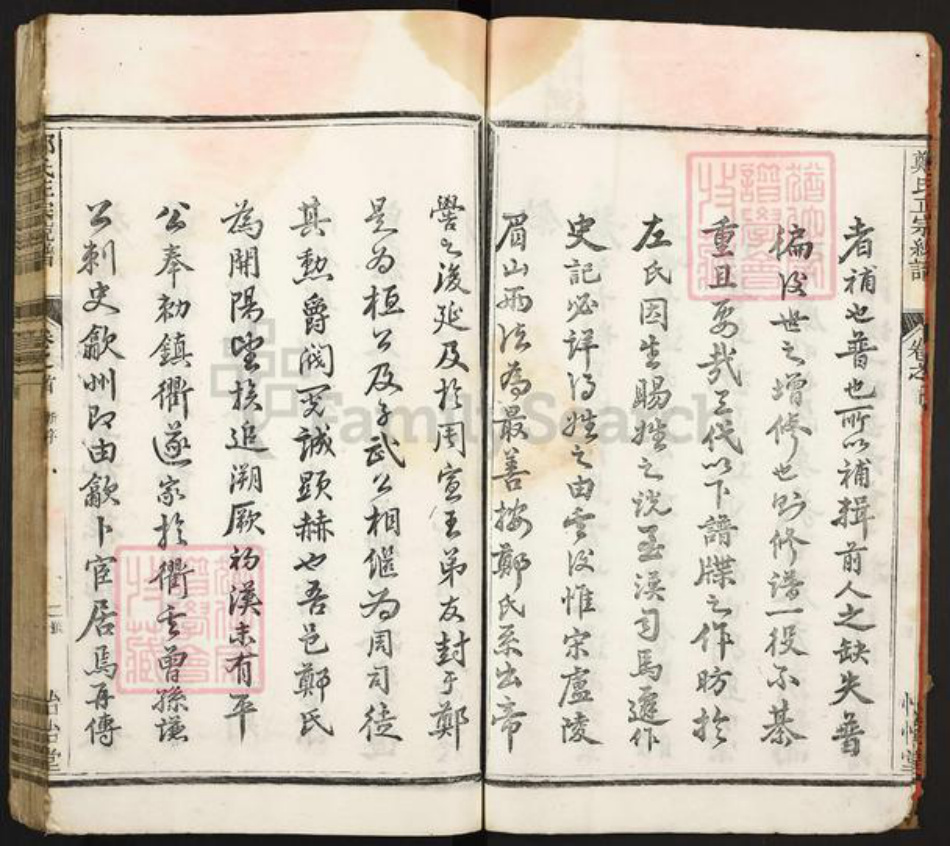 者補也普也所以補揖前人之缺失普
徧後世之增修也則修譜一役不綦
重且要哉三代以下譜牒之作昉於
左氏因生賜姓之説至漢司馬遷作
史記必詳得姓之由厥後惟宋廬陵
眉山兩法為最善按鄭氏系出帝
嚳之後延及於周宣王弟友封于鄭
是为桓公及子武公相繼为周司徒
其勲爵閥閲誠顕赫也吾邑鄭氏
為開陽望族追溯厥初漢末有平
公奉勅鎮衢遂家於衢玄曽孫謙
公刺史歙州即由歙卜宦居焉再傳
鄭氏正宗總譜
卷之首
怡怡堂
FamilySearch